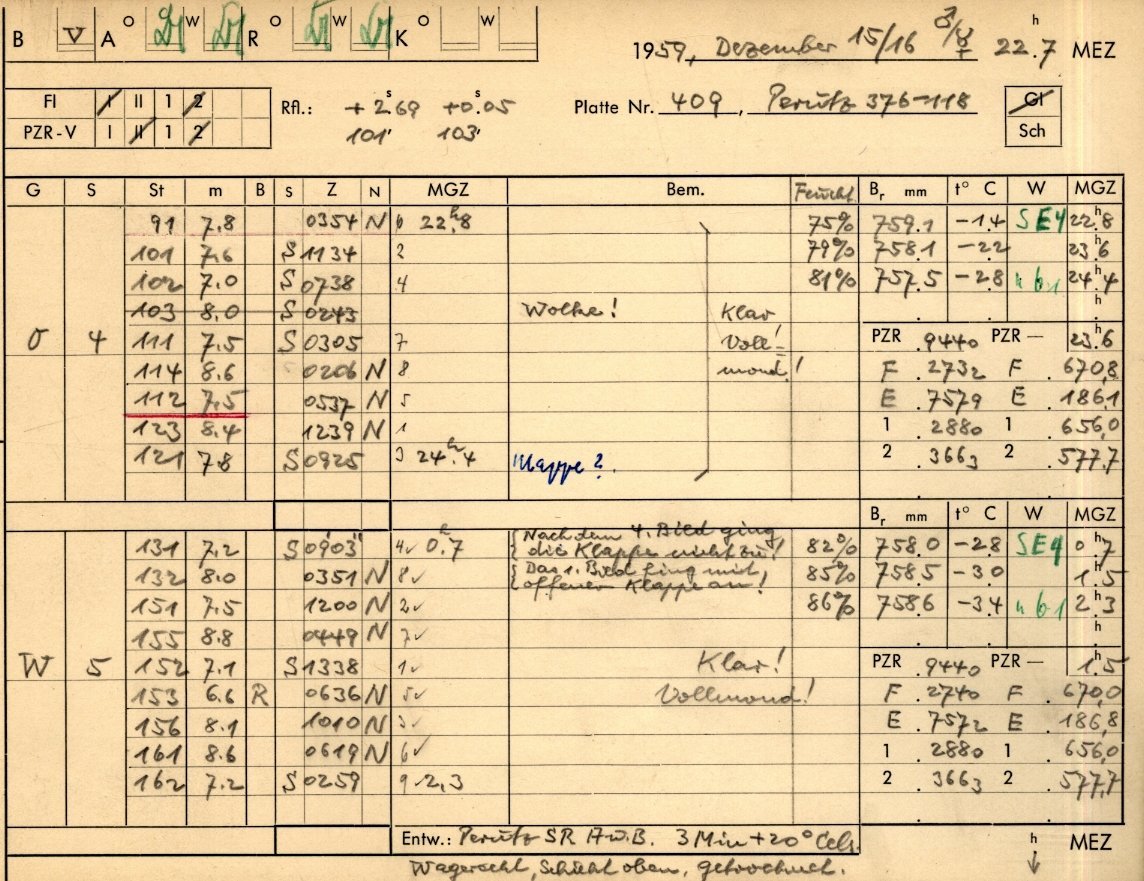 B V A O W R O W K O W
1959, Dezember 15/16 ♂/☿ 22.7 h MEZ
Fl I II 1 2
PZR-V I II 1 2
Rfl.: +2.s69 +0.s05
101' 103'
Platte Nr. 409, Perutz 376-118
Gl
Sch
G S St m B S Z N MGZ Bem. Feucht Br mm t° C W MGZ
91 7.8 0354 N 6 22.h8 75% 759.1 -1.4 SE4 22.h8
101 7.6 S 1134 2 79% 758.1 -2.2 23.h6
102 7.0 S 0738 4 81% 757.5 -2.8 24.h4
103 8.0 S 0243 Wolke! Klar h
O 4 111 7.5 S 0305 7 Voll= PZR .9440 PZR — 23.h6
114 8.6 0206 N 8 mond! F .2732 F .670,8
112 7.5 0537 N 5 E .7579 E .186,1
123 8.4 1239 N 1 1 .2880 1 .656,0
121 7.8 S 0925 3 24.h4 Klappe? 2 .3663 2 .577,7
Br mm t° C W MGZ
131 7.2 S 0903 4✓ 0.h7 {Nach dem 4. Bild ging die Klappe nicht zu! 82% 758.0 -2.8 SE4 0.h7
132 8.0 0351 N 8✓ {Das 1. Bild fing mit offener Klappe an! 85% 758.5 -3.0 1.h5
151 7.5 1200 N 2✓ 86% 758.6 -3.4 2.h3
155 8.8 0449 N 7✓ h
W 5 152 7.1 S 1338 1✓ Klar! PZR .9440 PZR — 1.h5
153 6.6 R 0636 N 5✓ Vollmond! F .2740 F .670,0
156 8.1 1010 N 3✓ E .7572 E .186,8
161 8.6 0619 N 6✓ 1 .2880 1 .656,0
162 7.2 S 0259 9 2.3 2 .3663 2 .577,7
Entw.: Perutz SR A u. B. 3 Min +20° Cels. h MEZ
Wagerecht, Schicht oben, getrocknet.